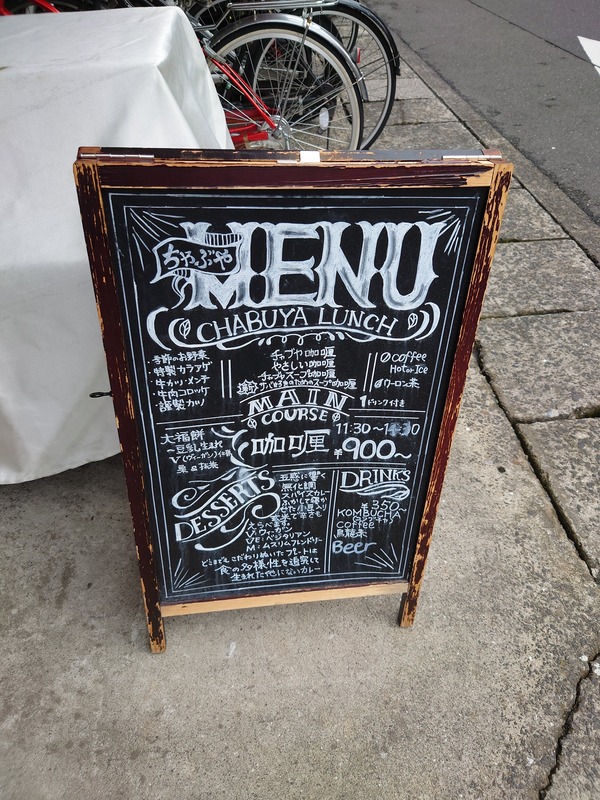 ちゃぶや
MENU
CHABUYA LUNCH
・季節のお野菜
・特製カラアゲ
・牛カツ・メンチ
・牛肉コロッケ
・謹製カツ
チャブヤ咖喱
やさしい咖喱
チャブヤスープ咖喱
のためのスープ咖喱
coffee
Hot or Ice
ウーロン茶
1ドリンク付き
MAIN
COURSE
咖喱
11:30~14:30
¥900~
大福餅
豆乳生まれ
V(ヴィーガン)仕様
DESSERTS
五感に響く
無化調
スパイスカレー
えらべます。
V:ヴィーガン
VE:ベジタリアン
M:ムスリムフレンドリー
どこまでもこだわりぬいたプレートは
食の多様性を追究して
生まれた他にないカレー
DRINKS
¥350~
KOMBUCHA
coffee
烏龍茶
Beer